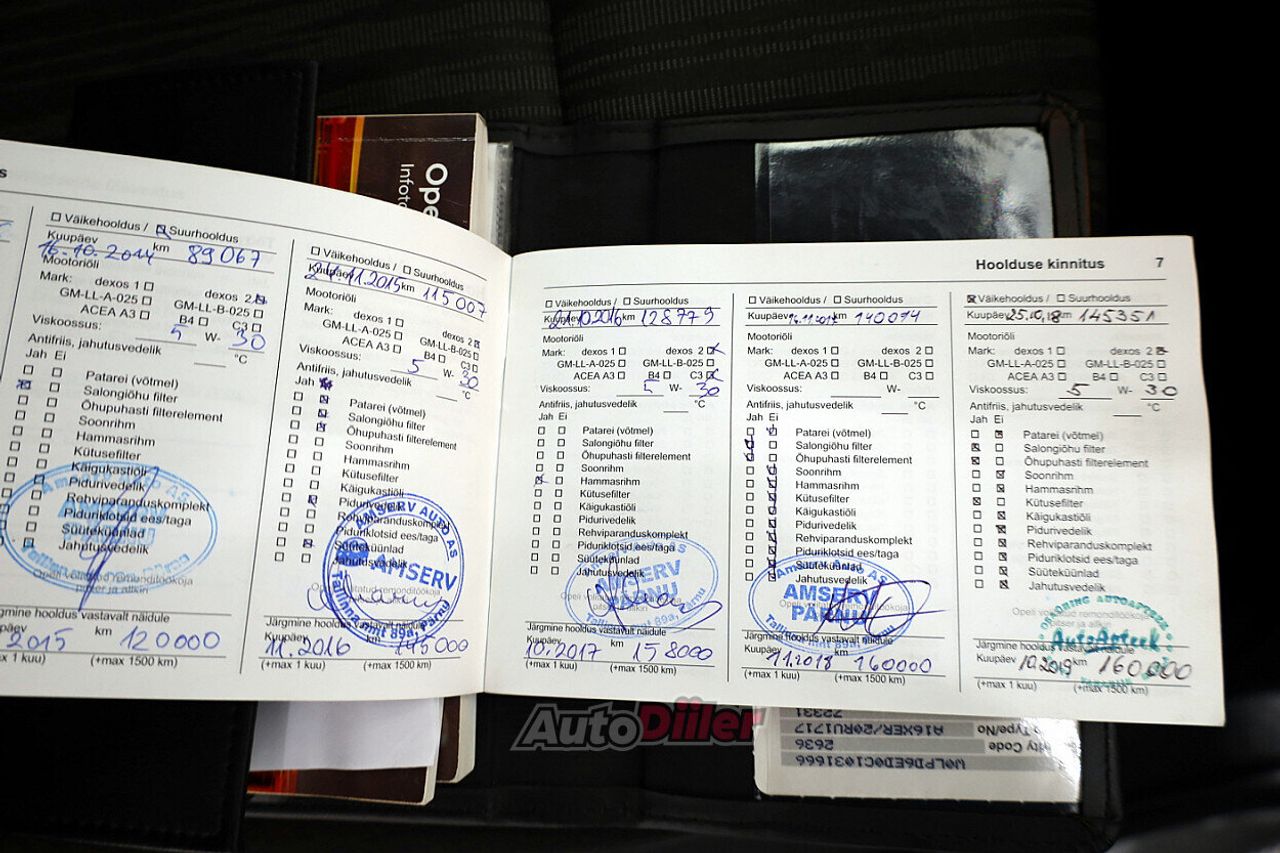 Ope
Infota
s
Väikehooldus / Suurhooldus
Kuupäev 16.10.2014 km 89067
Mootoriõli
Mark: dexos 1 dexos 2
GM-LL-A-025 GM-LL-B-025
ACEA A3 B4 C3
Viskoossus: 5 W- 30
Antifriis, jahutusvedelik °C
Jah Ei
Patarei (võtmel)
Salongiõhu filter
Õhupuhasti filterelement
Soonrihm
Hammasrihm
Kütusefilter
Käigukastiõli
Pidurivedelik
Rehviparanduskomplekt
Piduriklotsid ees/taga
Süüteküünlad
Jahutusvedelik
Järgmine hooldus vastavalt näidule
Kuupäev 2015 km 120000
(+max 1 kuu) (+max 1500 km)
Väikehooldus / Suurhooldus
Kuupäev 11.2015 km 115007
Mootoriõli
Mark: dexos 1 dexos 2
GM-LL-A-025 GM-LL-B-025
ACEA A3 B4 C3
Viskoossus: 5 W- 30
Antifriis, jahutusvedelik °C
Jah
Patarei (võtmel)
Salongiõhu filter
Õhupuhasti filterelement
Soonrihm
Hammasrihm
Kütusefilter
Käigukastiõli
Pidurivedelik
Rehviparanduskomplekt
Piduriklotsid ees/taga
Süüteküünlad
Jahutusvedelik
AMSERV AUTO AS
AMSERV
Tallinna mnt 89a, Pärnu
Järgmine hooldus vastavalt näidule
Kuupäev 11.2016 km 145000
(+max 1 kuu) (+max 1500 km)
Hoolduse kinnitus 7
Väikehooldus / Suurhooldus
Kuupäev 21.10.2016 km 128779
Mootoriõli
Mark: dexos 1 dexos 2
GM-LL-A-025 GM-LL-B-025
ACEA A3 B4 C3
Viskoossus: 5 W- 30
Antifriis, jahutusvedelik °C
Jah Ei
Patarei (võtmel)
Salongiõhu filter
Õhupuhasti filterelement
Soonrihm
Hammasrihm
Kütusefilter
Käigukastiõli
Pidurivedelik
Rehviparanduskomplekt
Piduriklotsid ees/taga
Süüteküünlad
Jahutusvedelik
AMSERV
PÄRNU
Järgmine hooldus vastavalt näidule
Kuupäev 10.2017 km 158000
(+max 1 kuu) (+max 1500 km)
Väikehooldus / Suurhooldus
Kuupäev 11.2017 km 140014
Mootoriõli
Mark: dexos 1 dexos 2
GM-LL-A-025 GM-LL-B-025
ACEA A3 B4 C3
Viskoossus: W-
Antifriis, jahutusvedelik °C
Jah Ei
Patarei (võtmel)
Salongiõhu filter
Õhupuhasti filterelement
Soonrihm
Hammasrihm
Kütusefilter
Käigukastiõli
Pidurivedelik
Rehviparanduskomplekt
Piduriklotsid ees/taga
Süüteküünlad
Jahutusvedelik
Amserv Auto AS
AMSERV
PÄRNU
Tallinna mnt 89a, Pärnu
Järgmine hooldus vastavalt näidule
Kuupäev 11.2018 km 160000
(+max 1 kuu) (+max 1500 km)
Väikehooldus / Suurhooldus
Kuupäev 25.10.18 km 145351
Mootoriõli
Mark: dexos 1 dexos 2
GM-LL-A-025 GM-LL-B-025
ACEA A3 B4 C3
Viskoossus: 5 W- 30
Antifriis, jahutusvedelik °C
Jah Ei
Patarei (võtmel)
Salongiõhu filter
Õhupuhasti filterelement
Soonrihm
Hammasrihm
Kütusefilter
Käigukastiõli
Pidurivedelik
Rehviparanduskomplekt
Piduriklotsid ees/taga
Süüteküünlad
Jahutusvedelik
AutoApteek
Järgmine hooldus vastavalt näidule
Kuupäev 10.2019 km 160000
(+max 1 kuu) (+max 1500 km)
AutoDiiler
W0LPD6ED0C1031666
2636 ity Code
A16XER/20RU1717 Type/No
72331